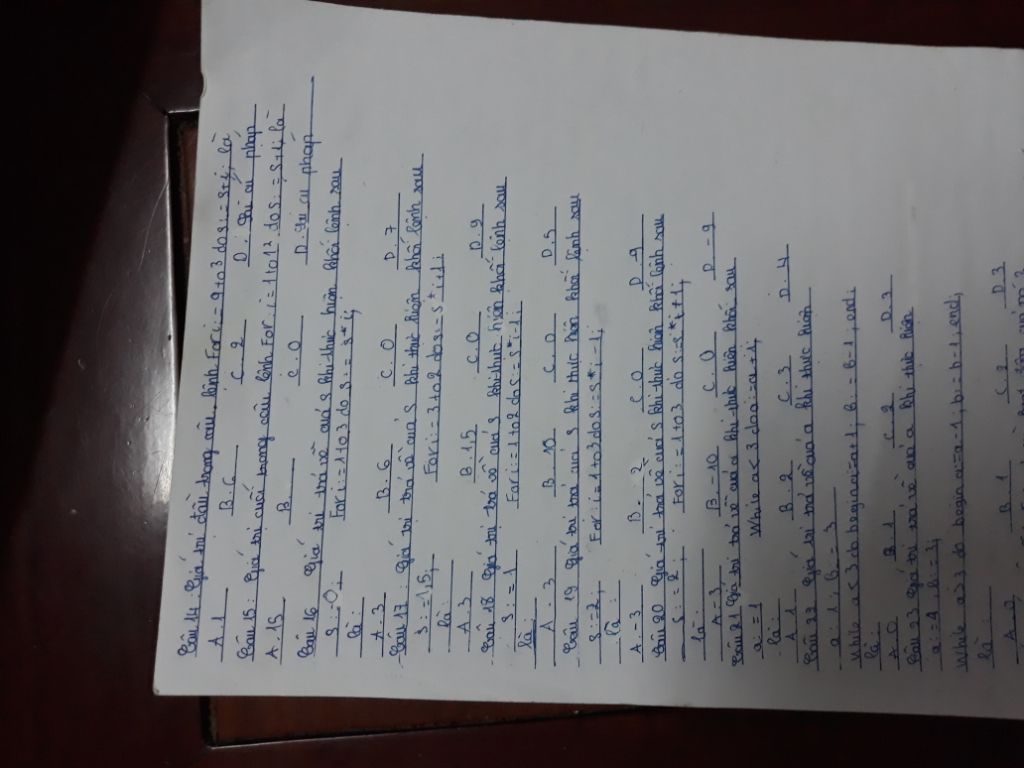 Câu 14: Giá trị đầu trong câu lệnh For i:=9 to 3 do s:=s+i; là
A. 1 B. 6 C. 2 D. Sai cú pháp
Câu 15: Giá trị cuối trong câu lệnh For i:=1 to 12 do s:=s+i; là
A. 15 B. C. 0 D. Sai cú pháp
Câu 16 Giá trị trả về của s khi thực hiện khối lệnh sau
s:=0; For i:=1 to 3 do s:=s*i;
là:
A. 3 B. 6 C. 0 D. 7
Câu 17: Giá trị trả về của s khi thực hiện khối lệnh sau
s:=15; For i:=3 to 2 do s:=s*i+1;
là:
A. 3 B. 15 C. 0 D. 9
Câu 18 Giá trị trả về của s khi thực hiện khối lệnh sau
s:=1 For i:=1 to 2 do s:=s*i-1;
là:
A. 3 B. 10 C. 0 D. 5
Câu 19 Giá trị trả về của s khi thực hiện khối lệnh sau
s:=2; For i:=1 to 3 do s:=s*i-1;
là:
A. -3 B. -2 C. 0 D. 9
Câu 20 Giá trị trả về của s khi thực hiện khối lệnh sau
s:=2; For i:=1 to 3 do s:=s*i+1;
là:
A = 3 B. -10 C. 0 D -9
Câu 21 Giá trị trả về của a khi thực hiện khối sau
a:=1 While a<3 do a:=a+1;
là:
A. 1 B. 2 C. 3 D. 4
Câu 22 Giá trị trả về của a khi thực hiện
a:1; b:=3
While a<3 do begin a:=a+1; b:=b-1; end;
là
A. 0 B. 1 C. 2 D. 3
Câu 23 Giá trị trả về của a khi thực hiện
a:=4, b:=3;
While a>3 do begin a:=a-1; b:=b-1; end;
là:
A. 0 B. 1 C. 2 D. 3